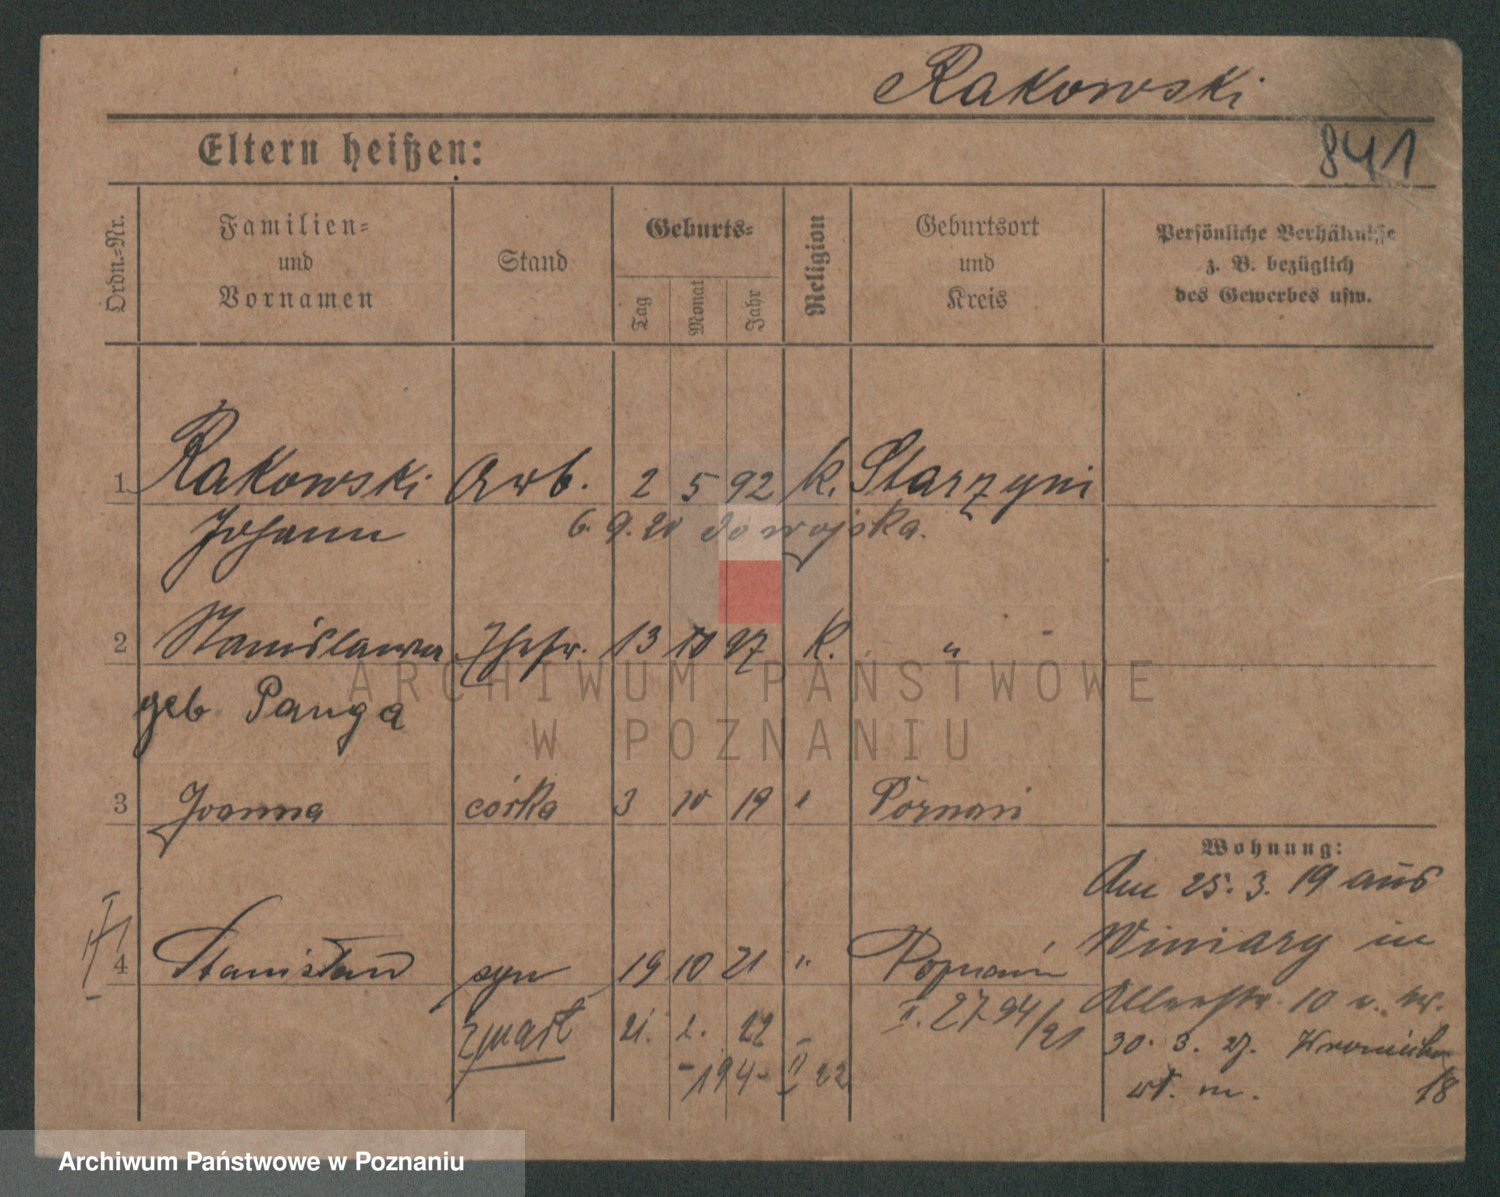 Rakowski
Eltern heißen:
841
Ordn.-Nr.
Familien-
und
Vornamen
Stand
Geburts-
Tag
Monat
Jahr
Religion
Geburtsort
und
Kreis
Persönliche Verhältnisse
z. B. bezüglich
des Gewerbes usw.
1 Rakowski Arb. 2 5 92 k. Starzyni
Johann 6. 9. 20 do wojska.
2 Stanislawa Ehefr. 13 10 97 k. "
geb Panga
ARCHIWUM PAŃSTWOWE
W POZNANIU
3 Joanna córka 3 10 19 " Poznań
Wohnung:
Am 25. 3. 19 aus
Winiary in
4 Stanisław syn 19 10 21 " Poznań
I. 2794/21
10 v. Wr.
zmarł 21. 2. 22
-194- II 22
30. 3. 27.
wł. m. 18
Archiwum Państwowe w Poznaniu